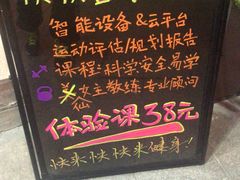 智能设备&云平台
运动评估/规划报告
课程:科学安全易学
美女教练专业顾问
仙
体验课38元
快来快快来健身!